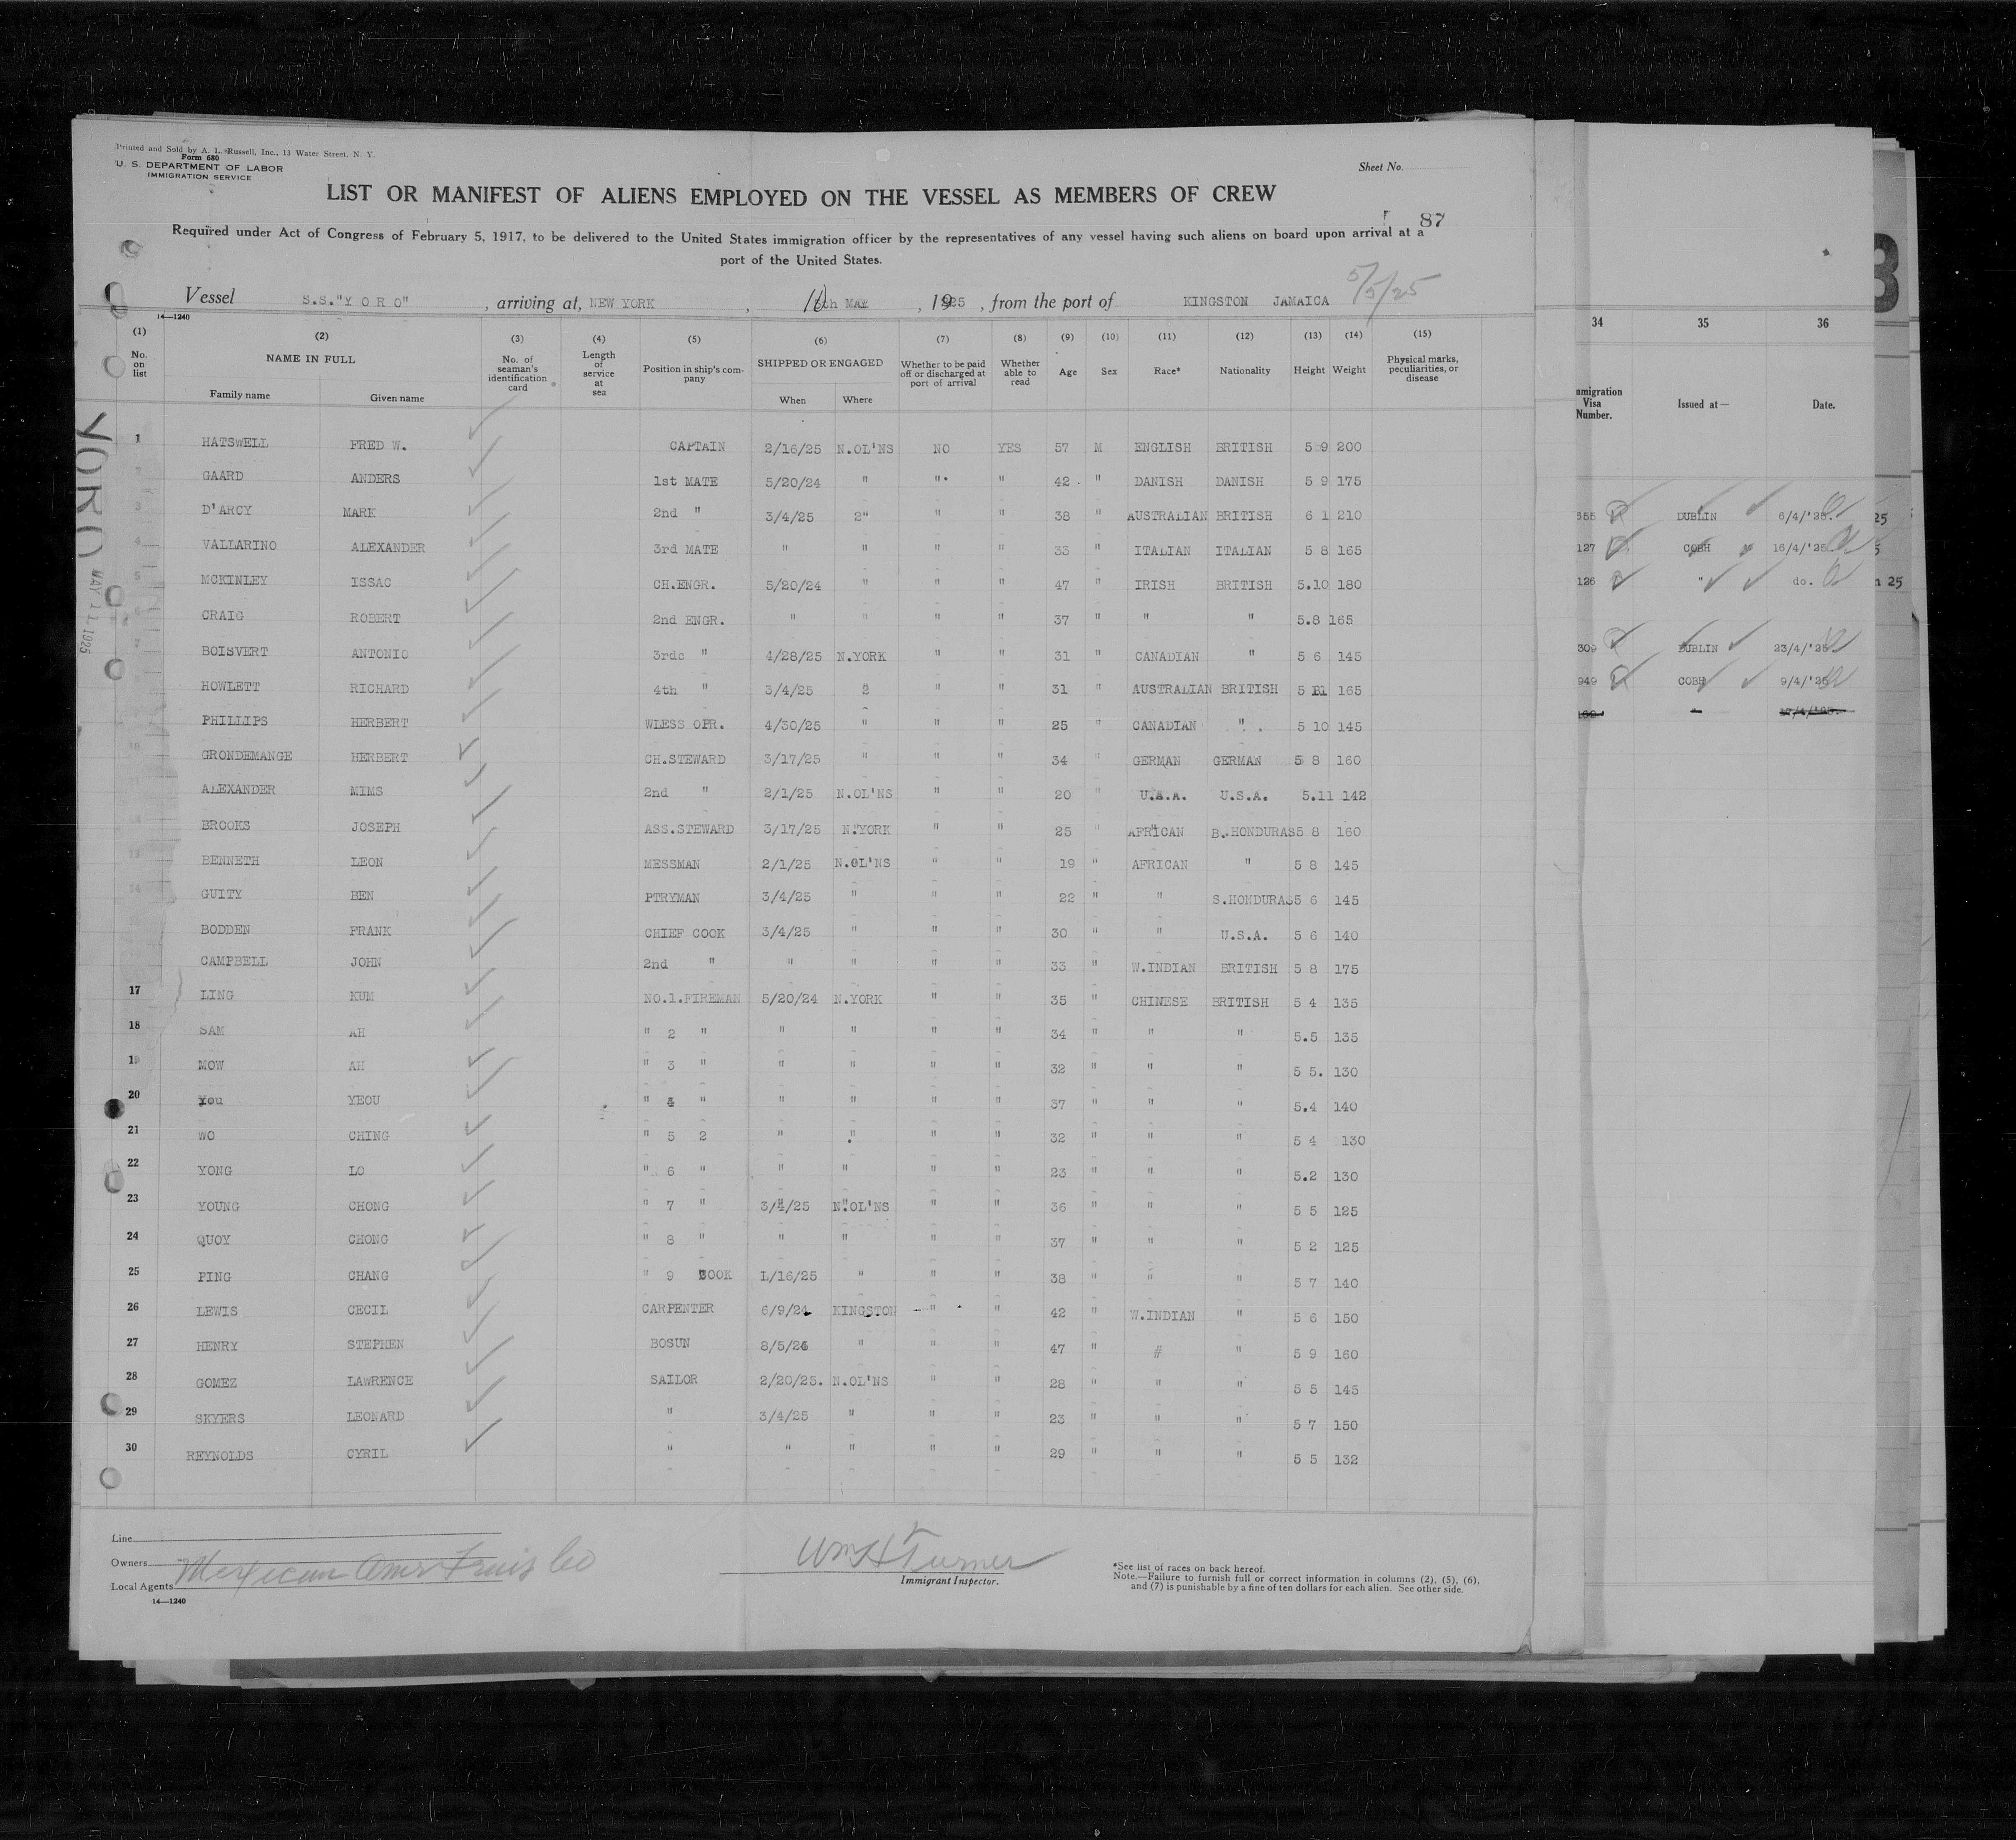 Printed and Sold by A. L. Russell, Inc., 13 Water Street, N. Y.
Form 680
U. S. DEPARTMENT OF LABOR
IMMIGRATION SERVICE
Sheet No.
LIST OR MANIFEST OF ALIENS EMPLOYED ON THE VESSEL AS MEMBERS OF CREW
87
Required under Act of Congress of February 5, 1917, to be delivered to the United States immigration officer by the representatives of any vessel having such aliens on board upon arrival at a
port of the United States.
5/5/25
Vessel S.S."Y O R O" , arriving at, NEW YORK , th MAY , 1925 , from the port of KINGSTON JAMAICA
14—1240
(1) (2) (3) (4) (5) (6) (7) (8) (9) (10) (11) (12) (13) (14) (15)
No. on list NAME IN FULL No. of seaman's identification card Length of service at sea Position in ship's company SHIPPED OR ENGAGED Whether to be paid off or discharged at port of arrival Whether able to read Age Sex Race* Nationality Height Weight Physical marks, peculiarities, or disease
Family name Given name When Where
1 HATSWELL FRED W. CAPTAIN 2/16/25 N.OL'NS NO YES 57 M ENGLISH BRITISH 5 9 200
2 GAARD ANDERS 1st MATE 5/20/24 " " " 42 " DANISH DANISH 5 9 175
3 D'ARCY MARK 2nd " 3/4/25 2" " " 38 " AUSTRALIAN BRITISH 6 1 210
4 VALLARINO ALEXANDER 3rd MATE " " " " 33 " ITALIAN ITALIAN 5 8 165
5 MCKINLEY ISSAC CH.ENGR. 5/20/24 " " " 47 " IRISH BRITISH 5.10 180
6 CRAIG ROBERT 2nd ENGR. " " " " 37 " " " 5.8 165
7 BOISVERT ANTONIO 3rdc " 4/28/25 N.YORK " " 31 " CANADIAN " 5 6 145
HOWLETT RICHARD 4th " 3/4/25 2 " " 31 " AUSTRALIAN BRITISH 5 11 165
PHILLIPS HERBERT WLESS OPR. 4/30/25 " " " 25 " CANADIAN " 5 10 145
10 GRONDEMANGE HERBERT CH.STEWARD 3/17/25 " " " 34 " GERMAN GERMAN 5 8 160
ALEXANDER MIMS 2nd " 2/1/25 N.OL'NS " " 20 " U.S.A. U.S.A. 5.11 142
BROOKS JOSEPH ASS.STEWARD 3/17/25 N.YORK " " 25 " AFRICAN B.HONDURAS 5 8 160
13 BENNETH LEON MESSMAN 2/1/25 N.OL'NS " " 19 " AFRICAN " 5 8 145
14 GUITY BEN PTRYMAN 3/4/25 " " " 22 " " S.HONDURAS 5 6 145
BODDEN FRANK CHIEF COOK 3/4/25 " " " 30 " " U.S.A. 5 6 140
CAMPBELL JOHN 2nd " " " " " 33 " W.INDIAN BRITISH 5 8 175
17 LING KUM NO.1.FIREMAN 5/20/24 N.YORK " " 35 " CHINESE BRITISH 5 4 135
18 SAM AH " 2 " " " " " 34 " " " 5.5 135
19 MOW AH " 3 " " " " " 32 " " " 5 5. 130
20 You YEOU " 4 " " " " " 37 " " " 5.4 140
21 WO CHING " 5 2 " " " " 32 " " " 5 4 130
22 YONG LO " 6 " " " " " 23 " " " 5.2 130
23 YOUNG CHONG " 7 " 3/4/25 N.OL'NS " " 36 " " " 5 5 125
24 QUOY CHONG " 8 " " " " " 37 " " " 5 2 125
25 PING CHANG " 9 COOK 1/16/25 " " " 38 " " " 5 7 140
26 LEWIS CECIL CARPENTER 6/9/24 KINGSTON " " 42 " W.INDIAN " 5 6 150
27 HENRY STEPHEN BOSUN 8/5/24 " " " 47 " # " 5 9 160
28 GOMEZ LAWRENCE SAILOR 2/20/25. N.OL'NS " " 28 " " " 5 5 145
29 SKYERS LEONARD " 3/4/25 " " " 23 " " " 5 7 150
30 REYNOLDS CYRIL " " " " " 29 " " " 5 5 132
YORO
MAY 11 1925
Line
Owners
Local Agents Mexican Amr Fruis Co
14—1240
Wm H Turner
Immigrant Inspector.
*See list of races on back hereof.
Note.—Failure to furnish full or correct information in columns (2), (5), (6),
and (7) is punishable by a fine of ten dollars for each alien. See other side.
34 35 36
mmigration Visa Number. Issued at— Date.
555 DUBLIN 6/4/'25.
127 COBH 16/4/'25
126 " do.
309 DUBLIN 23/4/'25
949 COBH 9/4/'25
25
25
3